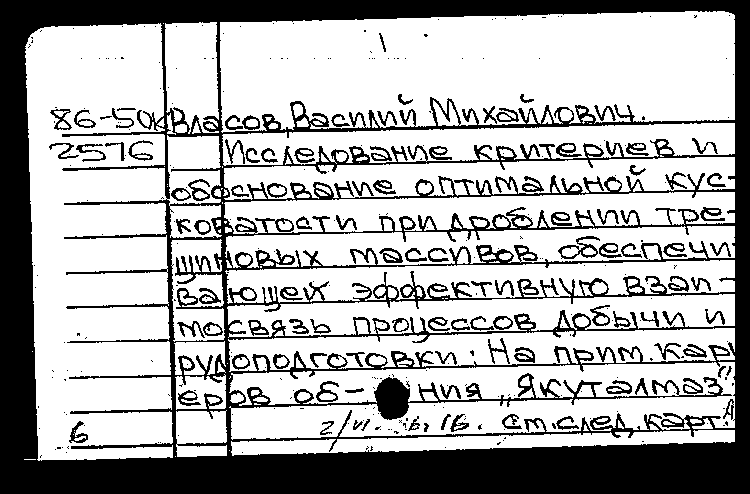 1
86-50к Власов, Василий Михайлович.
2576 Исследование критериев и
обоснование оптимальной кус-
коватости при дроблении тре-
щиновых массивов, обеспечи-
вающей эффективную взаи-
мосвязь процессов добычи и
рудоподготовки: На прим. карь
еров об- ния "Якуталмаз"
6 см. след. карт.